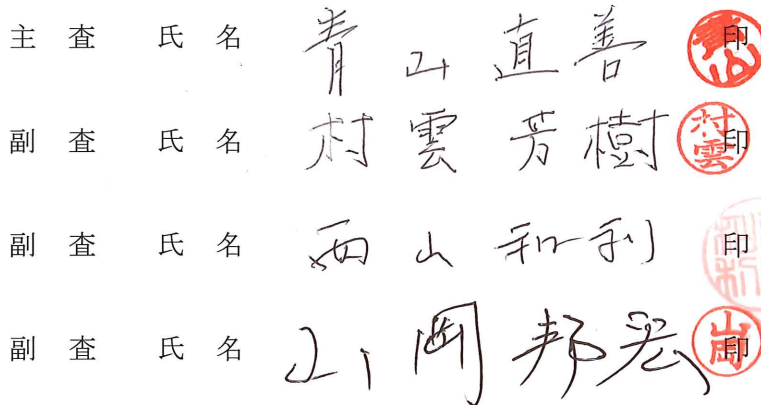 主査 氏名 青山直善 印 青山
副査 氏名 村雲芳樹 印 村雲
副査 氏名 西山和利 印
副査 氏名 山岡邦宏 印 山岡